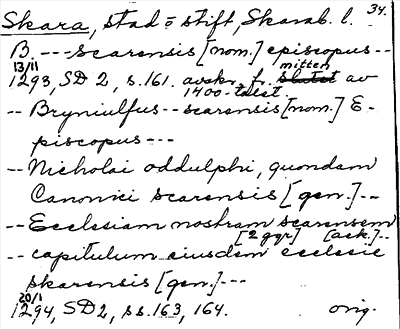 Skara, stad o stift, Skarab. l. 34.
B. --- scarensis [nom.] episcopus --
13/11 1293, SD 2, s. 161. avskr. fr. slutet mitten av 1400-talet.
-- Bryniulfus -- scarensis [nom.] E-
piscopus ---
-- Nicholai oddulphi, quondam
Canonici scarensis [gen.] --
-- Ecclesiam nostram scarensem
[2 ggr] [ack.] --
-- capitulum eiusdem ecclesie
skarensis [gen.] ---
20/1 1294, SD 2, ss. 163, 164. orig.